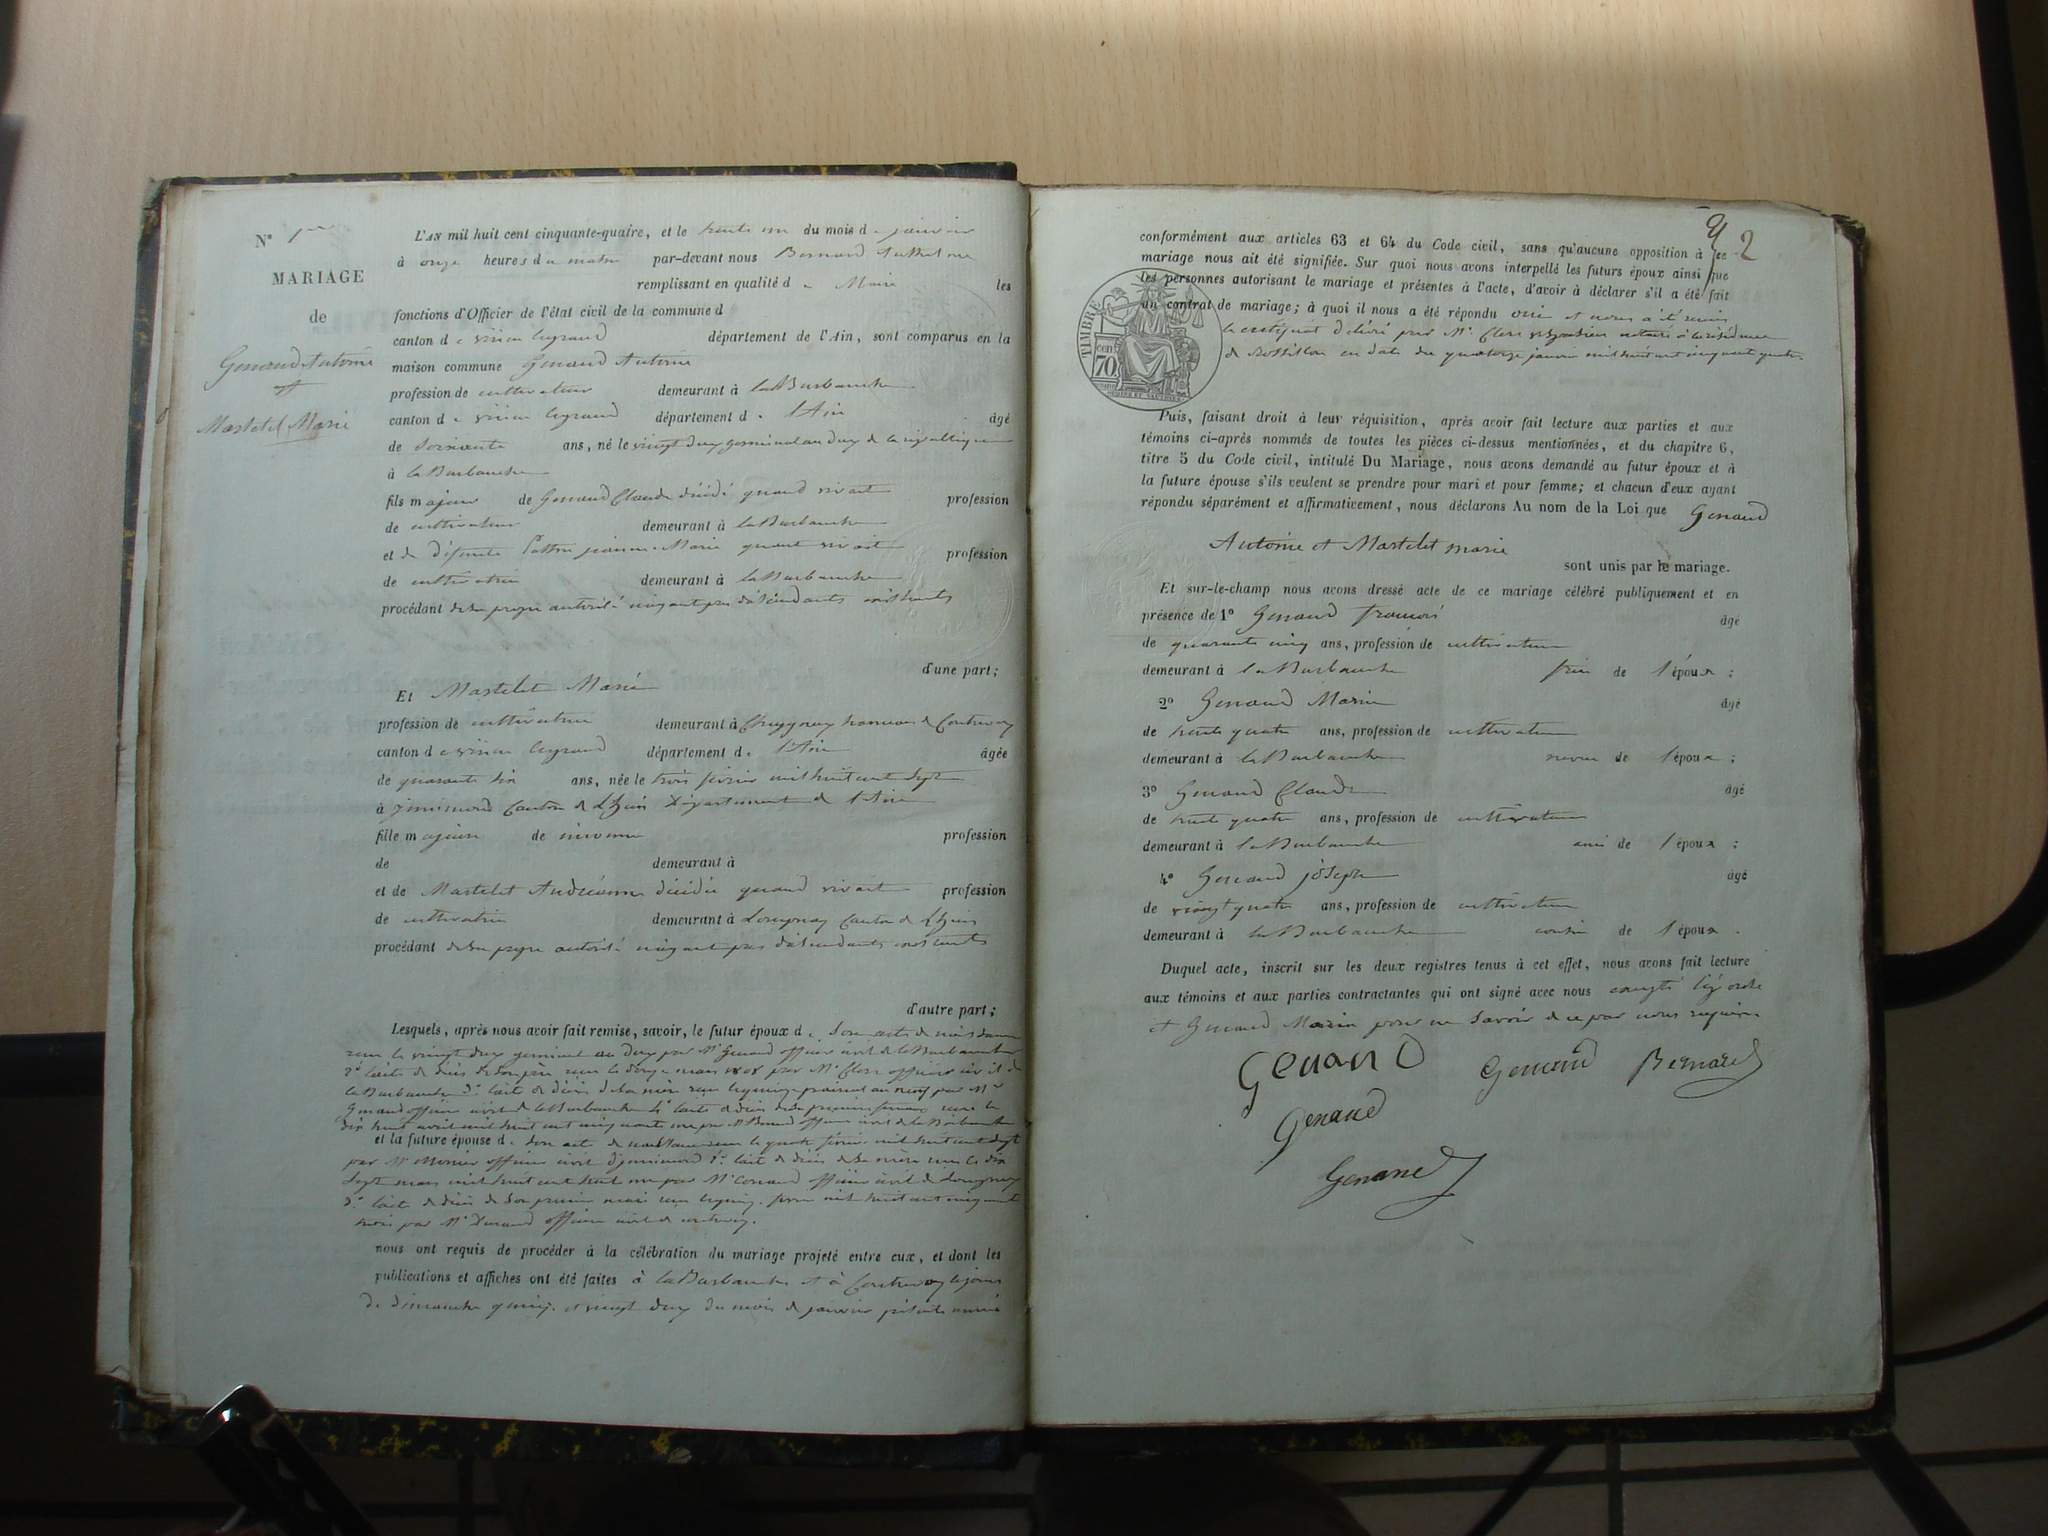 N° 1er
MARIAGE
de
Genaud Antoine
et
Martelet Marie
L'AN mil huit cent cinquante-quatre, et le trente un du mois de janvier
à onze heures du matin par-devant nous Bernard Anthelme
remplissant en qualité de Maire les
fonctions d'Officier de l'état civil de la commune d
canton de virieu legrand département de l'Ain, sont comparus en la
maison commune Genaud Antoine
profession de cultivateur demeurant à la Burbanche
canton de virieu legrand département de l'Ain âgé
de soixante ans, né le vingt deux germinal an deux de la république
à la Burbanche
fils majeur de Genaud Claude décédé quand vivait profession
de cultivateur demeurant à la Burbanche
et de défunte jeanne Marie quand vivait profession
de cultivatrice demeurant à la Burbanche
procédant de sa propre autorité n'ayant pas d'ascendants existants
d'une part;
Et Martelet Marie
profession de cultivatrice demeurant à hameau de Contrevoz
canton de virieu legrand département de l'Ain âgée
de quarante six ans, née le trois février mil huit cent sept
à jnnimond Canton de Lhuis Département de l'Ain
fille majeure de inconnu profession
de demeurant à
et de Martelet Andréanne décédée quand vivait profession
de cultivatrice demeurant à Lompnaz Canton de Lhuis
procédant de sa propre autorité n'ayant pas d'ascendants existants
d'autre part;
Lesquels, après nous avoir fait remise, savoir, le futur époux de son acte de naissance
reçu le vingt deux germinal an deux par Mr Genaud officier civil de la Burbanche
2° l'acte de décès de son père reçu le mars par Mr Clerc officier civil de
la Burbanche 3° l'acte de décès de sa mère reçu le quinze prairial an neuf par Mr
Genaud officier civil de la Burbanche 4° l'acte de décès de sa première femme reçu le
dix huit avril mil huit cent cinquante un par Mr Bernard officier civil de la Burbanche
et la future épouse de son acte de naissance reçu le quatre février mil huit cent sept
par Mr officier civil d'jnnimond 2° l'acte de décès de sa mère reçu le dix
sept mars mil huit cent par Mr officier civil de Lompnaz
3° l'acte de décès de son premier mari reçu le quinze mil huit cent cinquante
trois par Mr officier civil de contrevoz.
nous ont requis de procéder à la célébration du mariage projeté entre eux, et dont les
publications et affiches ont été faites à la Burbanche et à Contrevoz les jours
de dimanche quinze et vingt deux du mois de janvier présente année
2
conformément aux articles 63 et 64 du Code civil, sans qu'aucune opposition à ce
mariage nous ait été signifiée. Sur quoi nous avons interpellé les futurs époux ainsi que
les personnes autorisant le mariage et présentes à l'acte, d'avoir à déclarer s'il a été fait
un contrat de mariage; à quoi il nous a été répondu oui et nous a été remis
le certificat délivré par Mr. Clerc notaire à la résidence
de Rossillon en date du quatorze janvier mil huit cent cinquante quatre.
TIMBRE
70
cent
Puis, faisant droit à leur réquisition, après avoir fait lecture aux parties et aux
témoins ci-après nommés de toutes les pièces ci-dessus mentionnées, et du chapitre 6,
titre 5 du Code civil, intitulé Du Mariage, nous avons demandé au futur époux et à
la future épouse s'ils veulent se prendre pour mari et pour femme; et chacun d'eux ayant
répondu séparément et affirmativement, nous déclarons Au nom de la Loi que Genaud
Antoine et Martelet marie
sont unis par le mariage.
Et sur-le-champ nous avons dressé acte de ce mariage célébré publiquement et en
présence de 1° Genaud françois âgé
de quarante cinq ans, profession de cultivateur
demeurant à la Burbanche frère de l'époux ;
2° Genaud Marin âgé
de trente quatre ans, profession de cultivateur
demeurant à la Burbanche neveu de l'époux ;
3° Genaud Claude âgé
de trente quatre ans, profession de cultivateur
demeurant à la Burbanche ami de l'époux ;
4° Genaud joseph âgé
de vingt quatre ans, profession de cultivateur
demeurant à la Burbanche cousin de l'époux .
Duquel acte, inscrit sur les deux registres tenus à cet effet, nous avons fait lecture
aux témoins et aux parties contractantes qui ont signé avec nous excepté
et Genaud Marin pour ne savoir de ce par nous requis.
Genaud Genaud Bernard
Genaud
Genaud